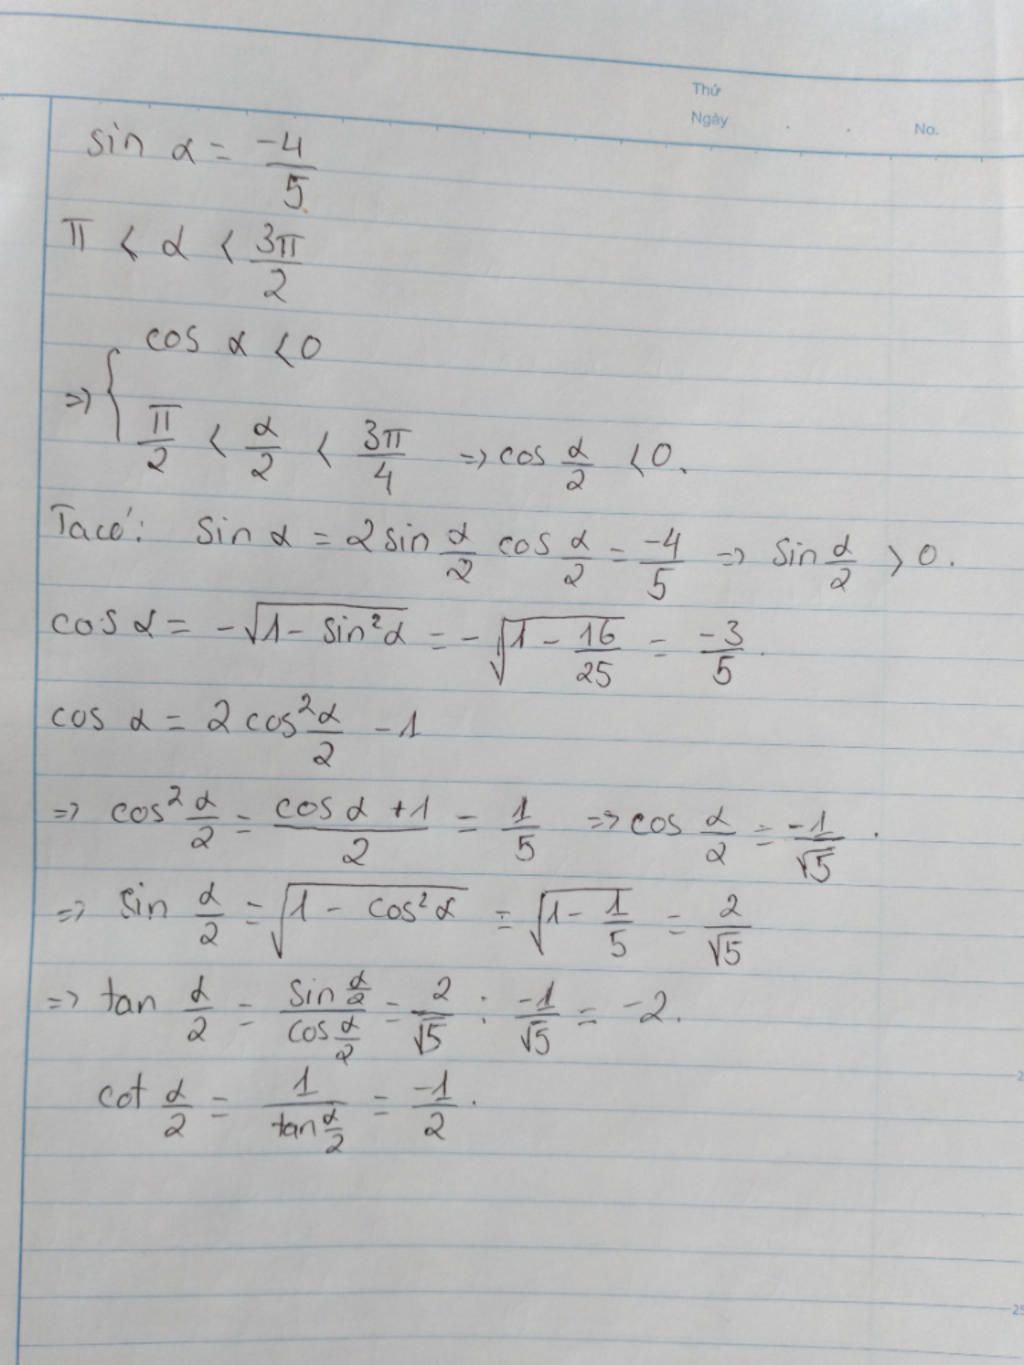 Thứ
Ngày . . No.
sin α = -4/5
π < α < 3π/2
=> { cos α < 0
π/2 < α/2 < 3π/4 => cos α/2 < 0.
Ta có: sin α = 2 sin α/2 cos α/2 = -4/5 => sin α/2 > 0.
cos α = -√(1 - sin²α) = -√(1 - 16/25) = -3/5.
cos α = 2 cos² α/2 - 1
=> cos² α/2 = (cos α + 1)/2 = 1/5 => cos α/2 = -1/√5.
=> sin α/2 = √(1 - cos²α) = √(1 - 1/5) = 2/√5
=> tan α/2 = (sin α/2)/(cos α/2) = 2/√5 : -1/√5 = -2.
cot α/2 = 1/(tan α/2) = -1/2.
25